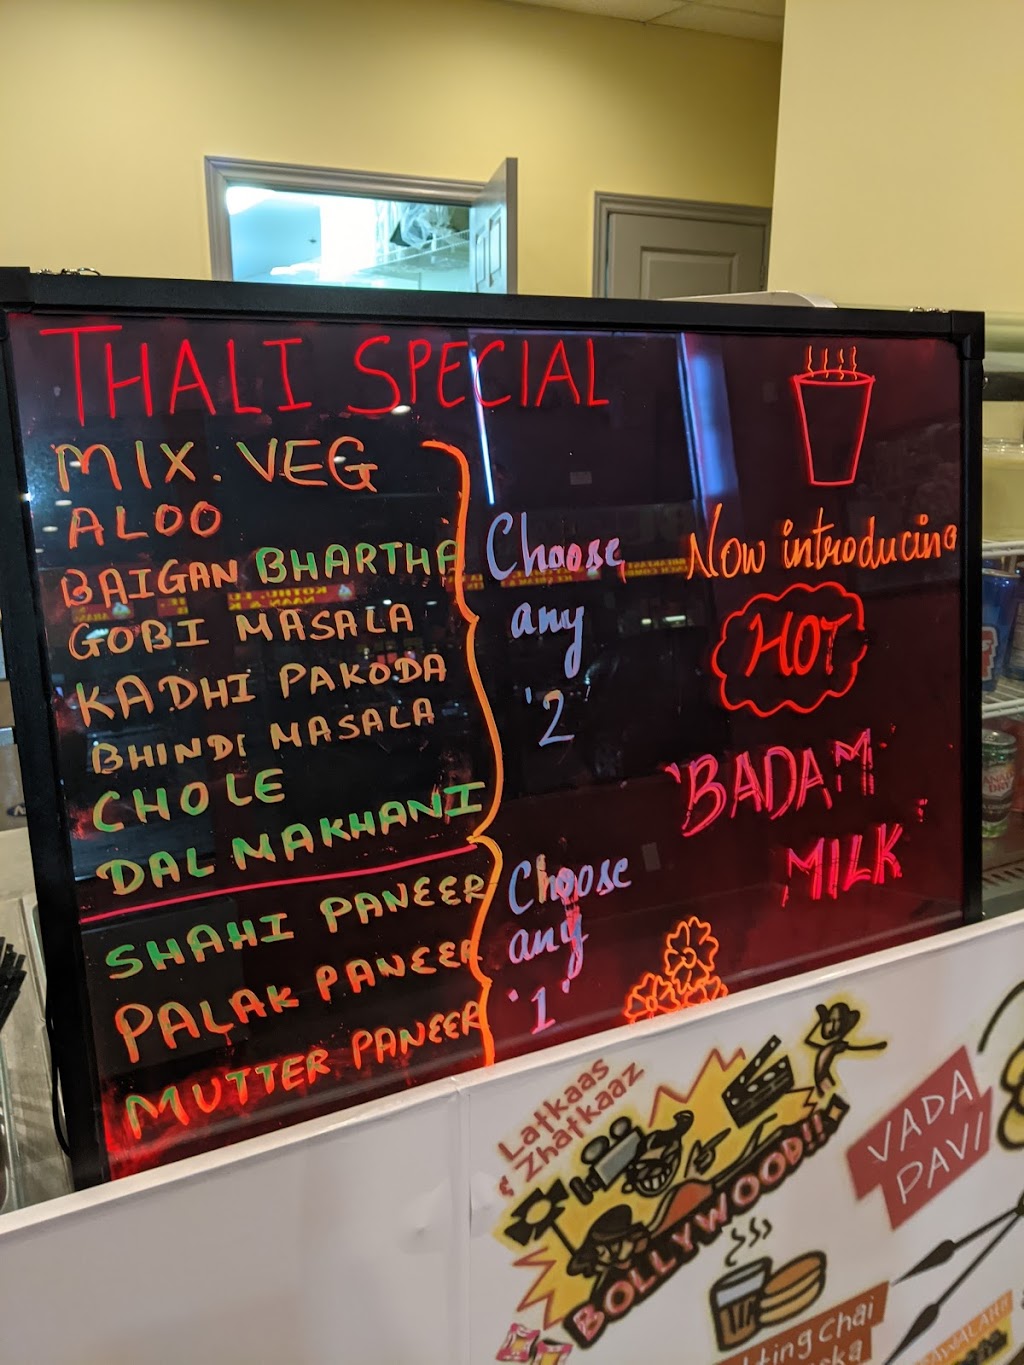 THALI SPECIAL
MIX. VEG
ALOO
BAIGAN BHARTHA
GOBI MASALA
KADHI PAKODA
BHINDI MASALA
CHOLE
DAL MAKHANI
Choose
any
'2'
SHAHI PANEER
PALAK PANEER
MUTTER PANEER
Choose
any
'1'
Now introducing
HOT
'BADAM
MILK'
Latkaas
& Zhatkaaz
BOLLYWOOD!!
VADA
PAVI
chai